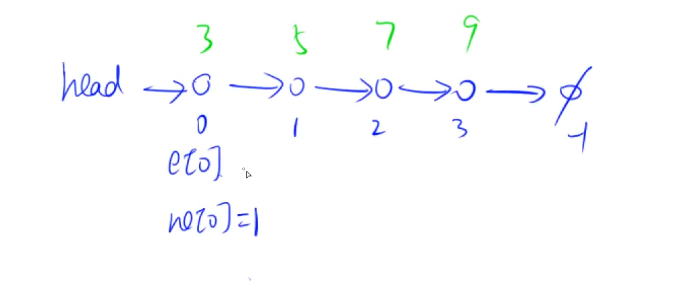 3 5 7 9
head → 0 → 0 → 0 → 0 → ∅
0 1 2 3 -1
e[0]
ne[0]=1